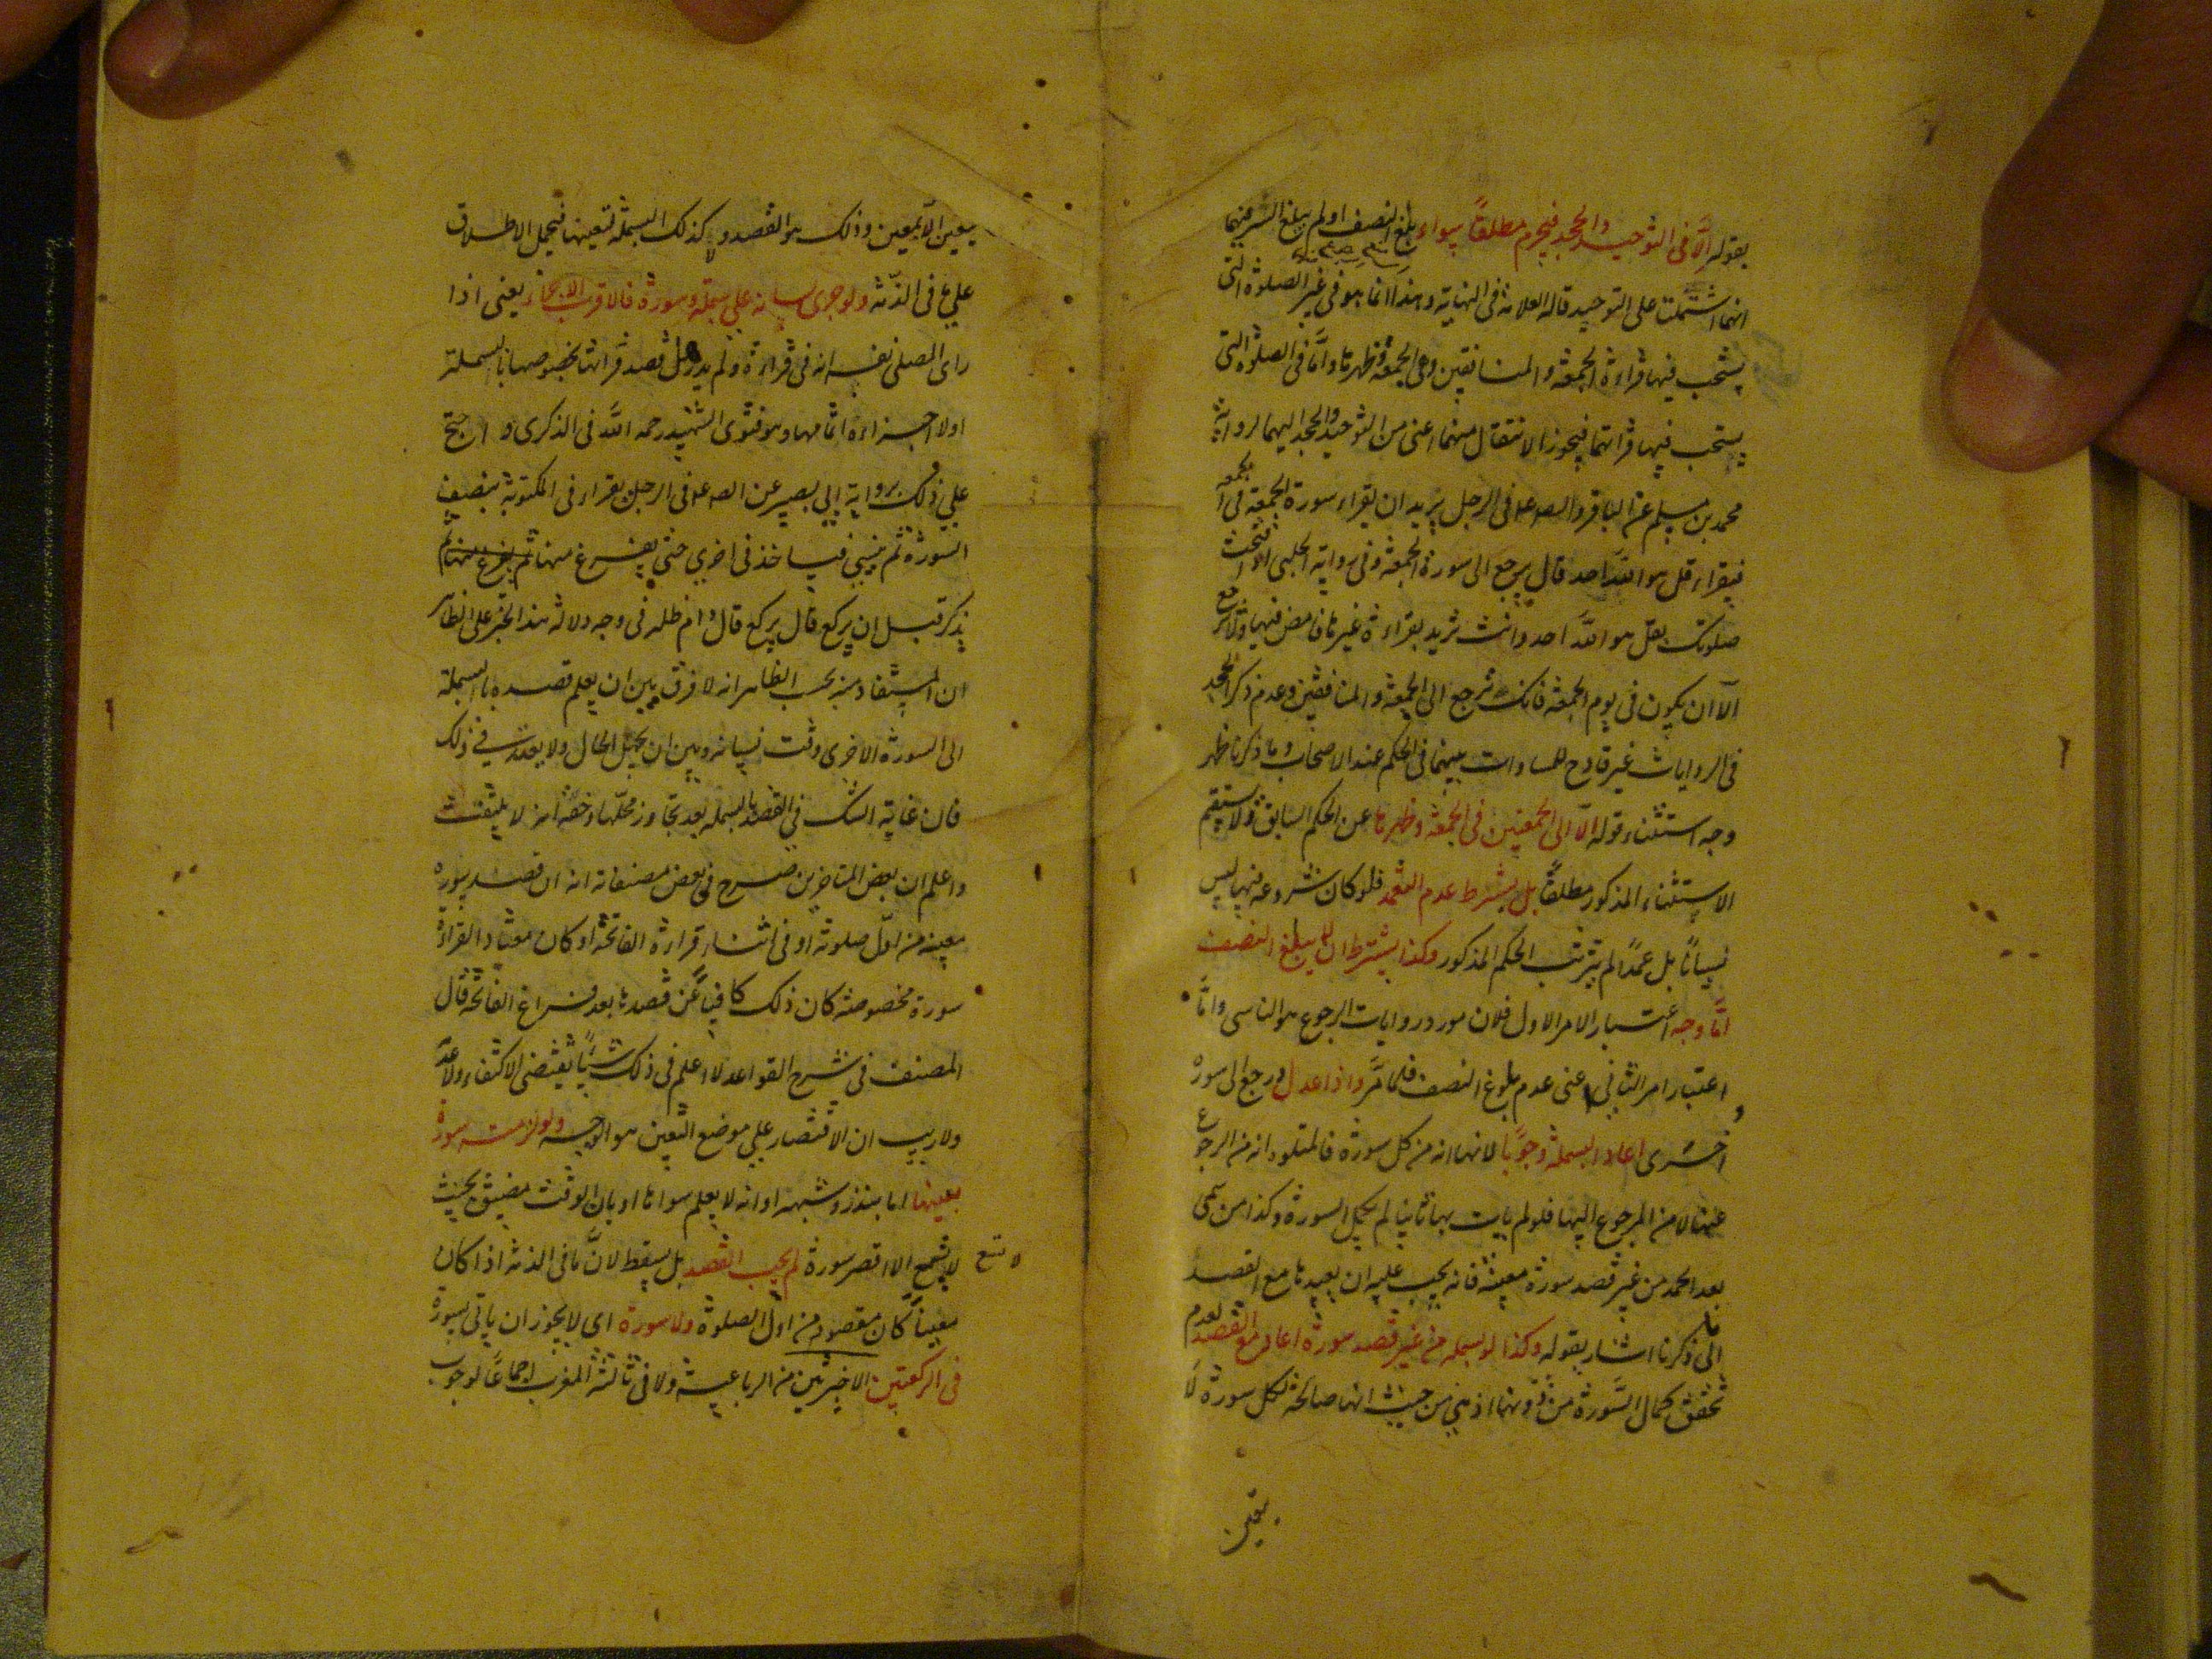 بقوله الا فى التوحيد والجحد فيحرم مطلقاً سواء بلغ النصف او لم يبلغ السر فيهما
انهما اشتملت على التوحيد قاله العلامة فى النهاية وهذا انما هو فى غير الصلوة التى
يستحب فيها قراءة الجمعة والمنافقين وهى الجمعة وظهرها واما فى الصلوة التى
يستحب فيها قراءتهما فيجوز الانتقال منهما اعنى من التوحيد والجحد اليهما لرواية
محمد بن مسلم عن الباقر والصه على فى الرجل يريد ان يقراء سورة الجمعة فى الجمعه
فيقراء قل هو الله احد قال يرجع الى سورة الجمعة وفى رواية الحلبى اذا افتتحت
صلوتك بقل هو الله احد وانت تريد بقراءة غيرها فامض فيها ولا ترجع
الا ان يكون فى يوم الجمعة فانك ترجع الى الجمعة والمنافقين وعدم ذكر الجحد
فى الروايات غير قادح للمساوات بينهما فى الحكم عند الاصحاب وما ذكرنا ظهر
وجه استثناء قوله الا الى الجمعتين فى الجمعة وظهرها عن الحكم السابق ولا يستقيم
الاستثناء المذكور مطلقاً بل يشترط عدم التعمد فلو كان شروعه فيها ليس
نسياناً بل عمداً لم يترتب الحكم المذكور وكذا يشترط ان لا يبلغ النصف
امّا وجه اعتبار الامر الاول فلان مورد روايات الرجوع هو الناسى وامّا
اعتبار امر الثانى اعنى عدم بلوغ النصف فلما مرّ واذا عدل ورجع الى سورة
اخرى اعاد البسملة وجوباً لانها اية من كل سورة فالمتلوه اية من الرجوع
عنها لا من المرجوع اليها فلو لم يات بها ثانيا لم يكمل السورة وكذا من سمى
بعد الحمد من غير قصد سورة معينة فانه يجب عليه ان يعيدها مع القصد
الى ما ذكرنا اشار بقوله وكذا لو بسمل من غير قصد سورة اعاد مع القصد لعدم
تحقق كمال السّورة من دونهما اذ هى من حيث انها صالحة لكل سورة لا
يتعين
يتعين الا بمعين وذلك هو القصد ولا كذلك البسملة لتعينها فيحمل الاطلاق
على ما فى الذمّة ولو جرى لسانه على بسملة وسورة فالاقرب الاجزاء يعنى اذا
راى المصلى نفسه انه فى قراءة ولم يدر هل قصد قرائتها بخصوصها بالبسملة
اولا اجزاءه اتمامها وهو فتوى الشهيد رحمه الله فى الذكرى و احتج
على ذلك برواية ابى بصير عن الصه على فى الرجل يقراء فى المكتوبة بنصف
السورة ثم ينسى فياخذ فى اخرى حتى يفرغ منها ثم يفرغ منها ثم
يذكر قبل ان يركع قال يركع قال دام ظله فى وجه دلالة هذا الخبر على الظاهر
ان المستفاد منه بحسب الظاهر انه لا فرق بين ان يعلم قصده بالبسملة
الى السورة الاخرى وقت نسيانه وبين ان يجهل الحال ولا بعد فى ذلك
فان غاية الشك فى القصد بالبسملة بعد تجاوز محلها وحقه انه لا يلتفت
واعلم ان بعض المتاخرين صرح فى بعض مصنفاته انه ان قصد سورة
معينه من اوّل صلوته او فى اثناء قراءة الفاتحة او كان معتاد القراءة
سورة مخصوصة كان ذلك كافياً عن قصدها بعد فراغ الفاتحة قال
المصنف فى شرح القواعد لا اعلم فى ذلك شيئاً يقتضى الاكتفاء ولا عدّ
ولا ريب ان الاقتصار على موضع التعين هو الوجه ولو لزمته سورة
بعينها اما بنذر وشبهه او انه لا يعلم سواها او بان الوقت مضيق بحيث
لا يسع الا اقصر سورة لم يجب القصد بل يسقط لانّ ما فى الذمة اذا كان
لا تسع
معيناً كان مقصوده من اول الصلوة ولا سورة اى لا يجوز ان ياتى بسورة
فى الركعتين الاخيرتين من الرباعية ولا فى ثالثة المغرب اجماعاً لوجوب